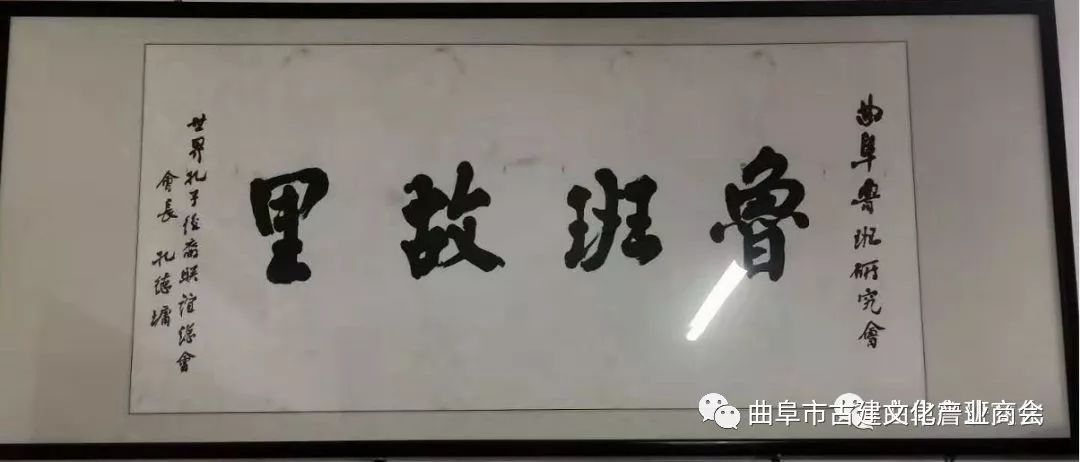 曲阜魯班研究會
魯班故里
世界孔子後裔聯誼總會
會長 孔德墉
曲阜市古建文化产业商会